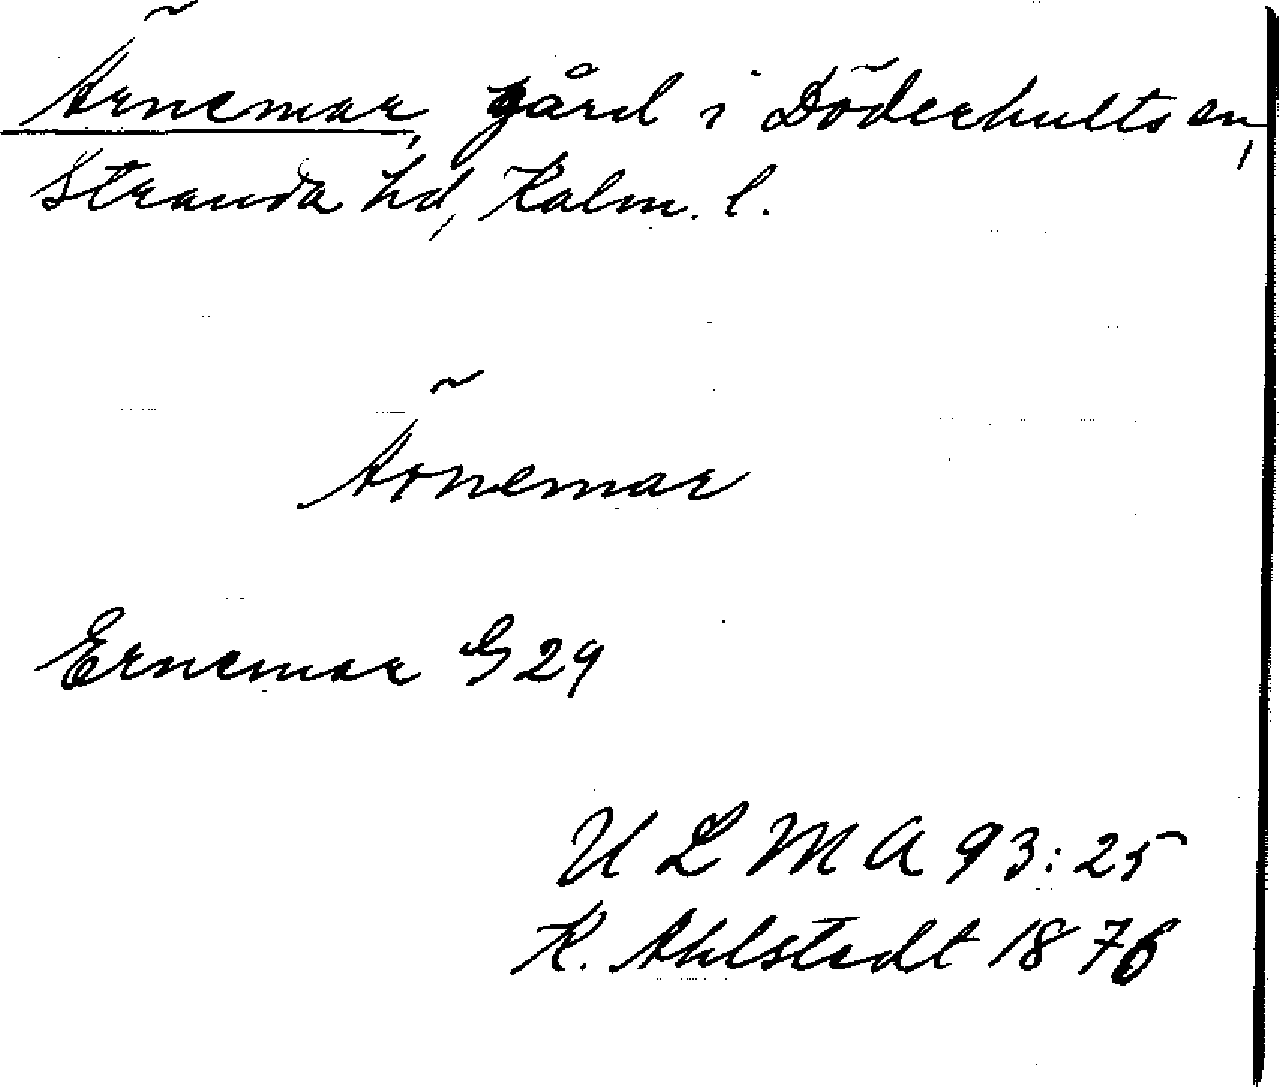 Ärnemar, gård i Döderhults sn,
Stranda hd, Kalm. l.
Ärnemar
Ernemar G 29
U L M A 93:25
K. Ahlstedt 1876